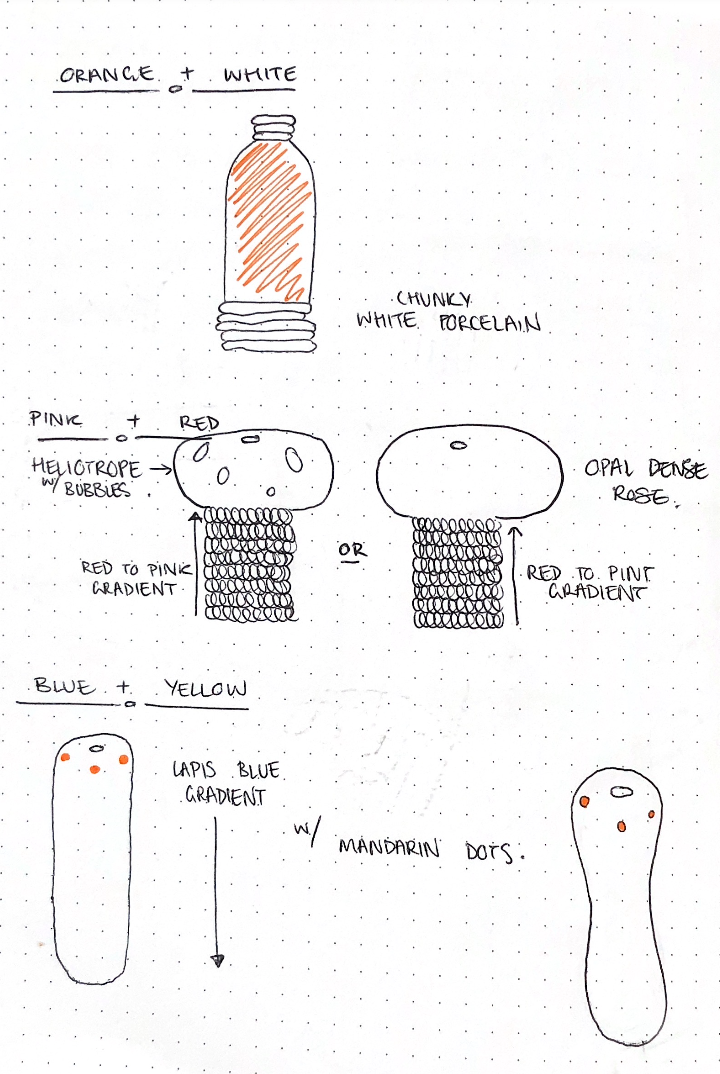 ORANGE + WHITE
CHUNKY
WHITE PORCELAIN
PINK + RED
HELIOTROPE
W/ BUBBLES.
RED TO PINK
GRADIENT
OR
OPAL DENSE
ROSE.
RED TO PINK
GRADIENT
BLUE + YELLOW
LAPIS BLUE
GRADIENT
W/ MANDARIN DOTS.